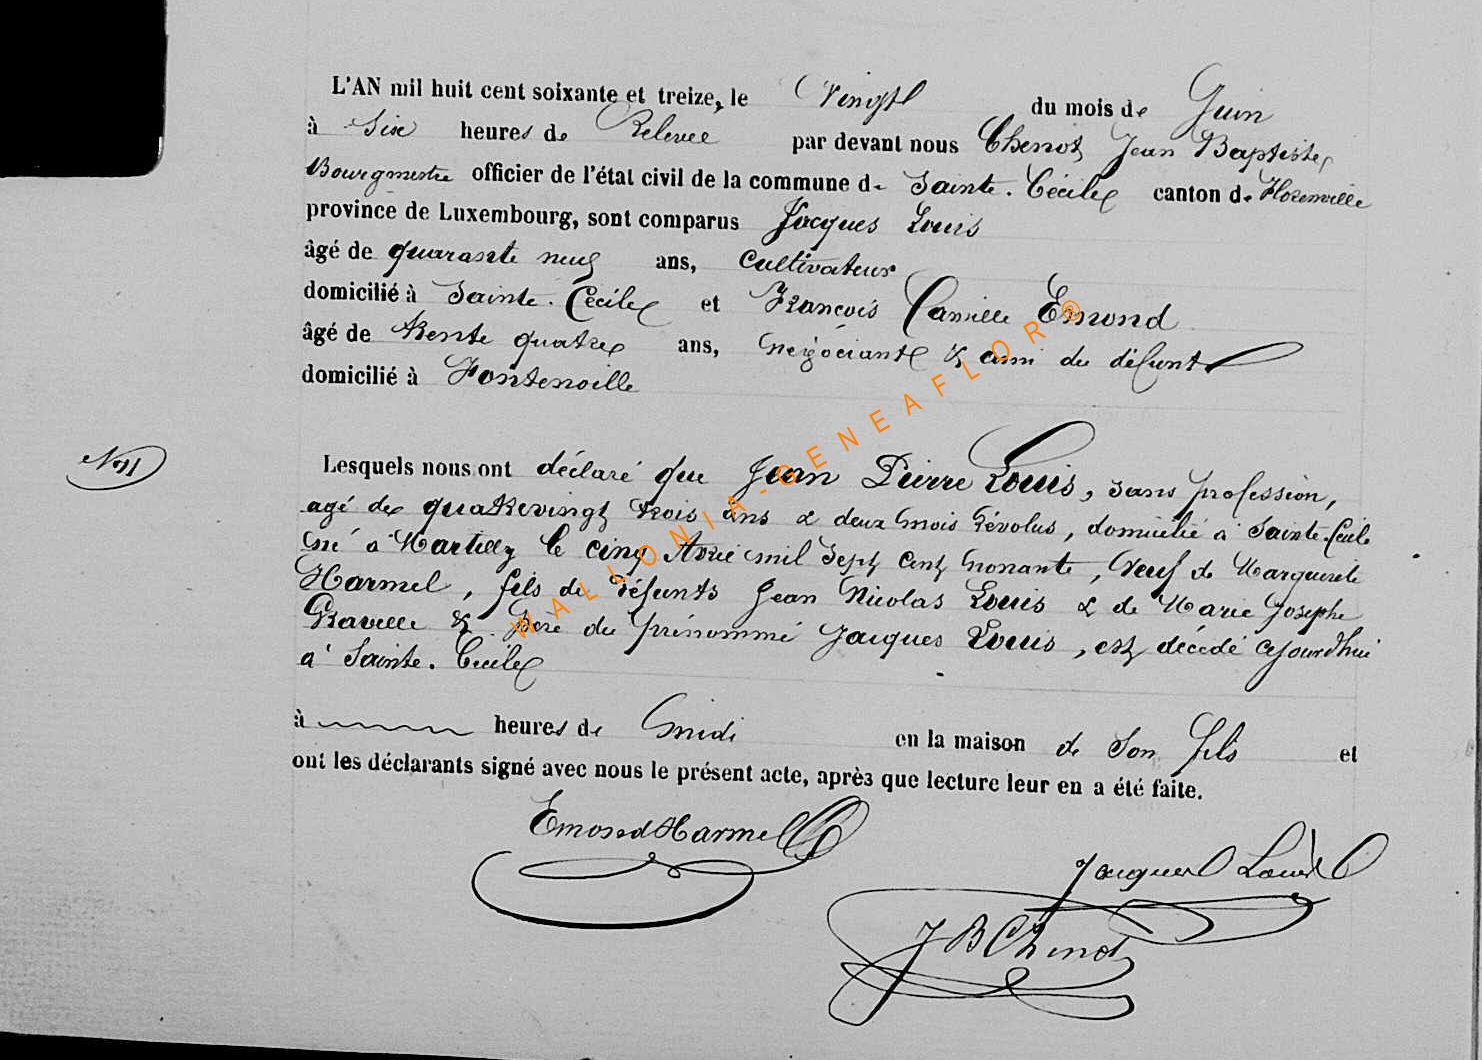 L'AN mil huit cent soixante et treize, le Vingt du mois de Juin
à Six heures de Relevée par devant nous Chenot Jean Baptiste,
Bourgmestre officier de l'état civil de la commune de Sainte-Cécile canton de Florenville
province de Luxembourg, sont comparus Jacques Louis
âgé de quarante neuf ans, Cultivateur
domicilié à Sainte-Cécile et François Camille Emond
âgé de trente quatre ans, négociant & ami du défunt
domicilié à Fontenoille
N 11
Lesquels nous ont déclaré que Jean Pierre Louis, sans profession,
agé de quatrevingt trois ans & deux mois révolus, domicilié à Sainte-Cécile
né à Martilly le cinq Avril mil sept cent nonante, Veuf de Marguerite
Harmel, fils de défunts Jean Nicolas Louis & de Marie Josephe
Gravelle & Père du prénommé Jacques Louis, est décédé cejourd'hui
à Sainte-Cécile
à heures de midi en la maison de son fils et
ont les déclarants signé avec nous le présent acte, après que lecture leur en a été faite.
Emond Harmel
Jacques Louis
J B Chenot
WALLONIA-GENEAFLOR®